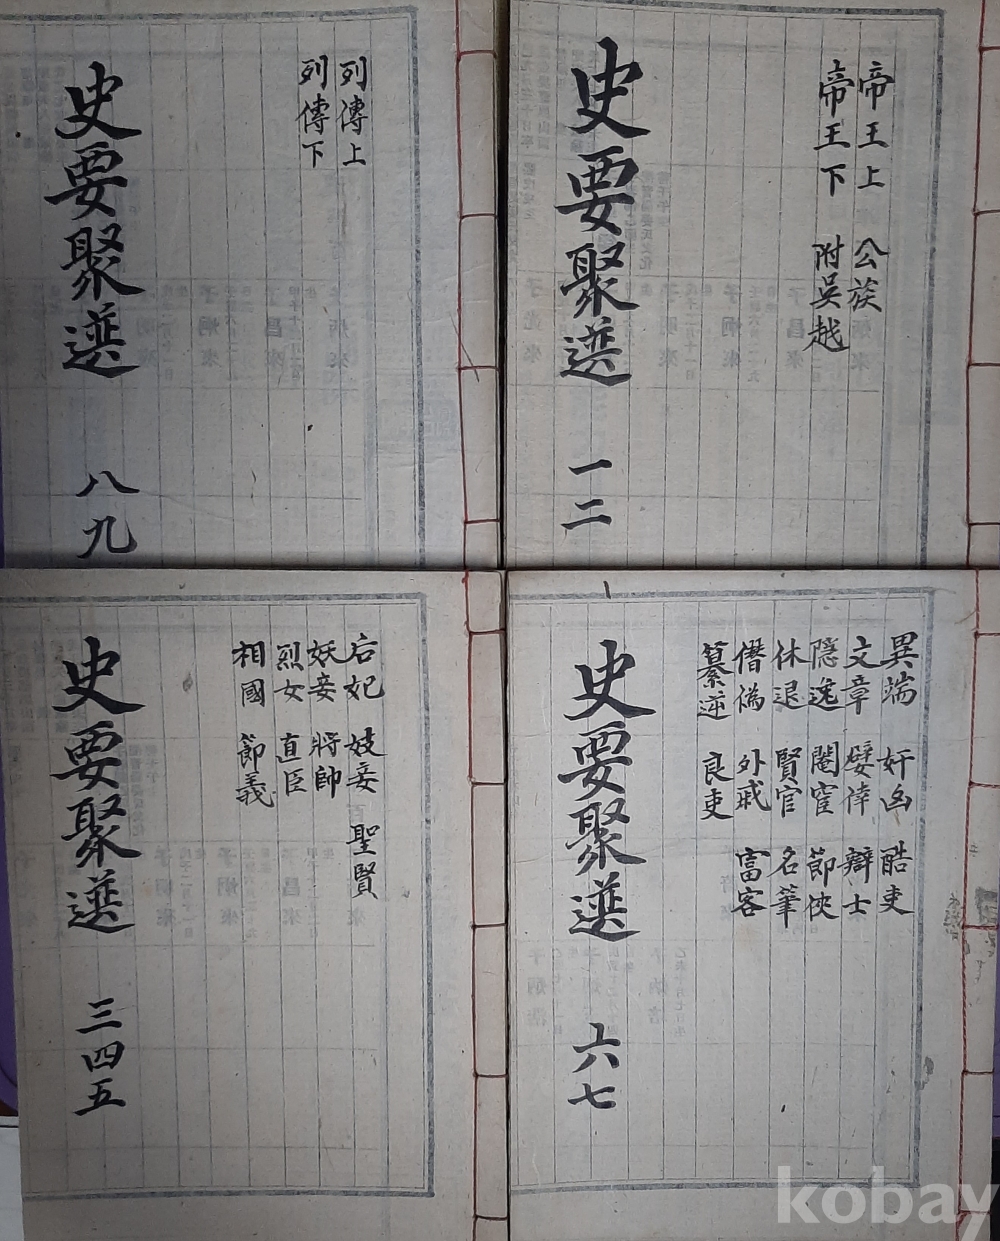 帝王上 公族
帝王下 附吳越
史要聚選 一二
列傳上
列傳下
史要聚選 八九
異端 奸凶 酷吏
文章 嬖倖 辯士
隱逸 閹宦 節俠
休退 賢官 名筆
僭僞 外戚 富客
篡逆 良吏
史要聚選 六七
后妃 妓妾 聖賢
妖妾 將帥
烈女 直臣
相國 節義
史要聚選 三四五
kobay